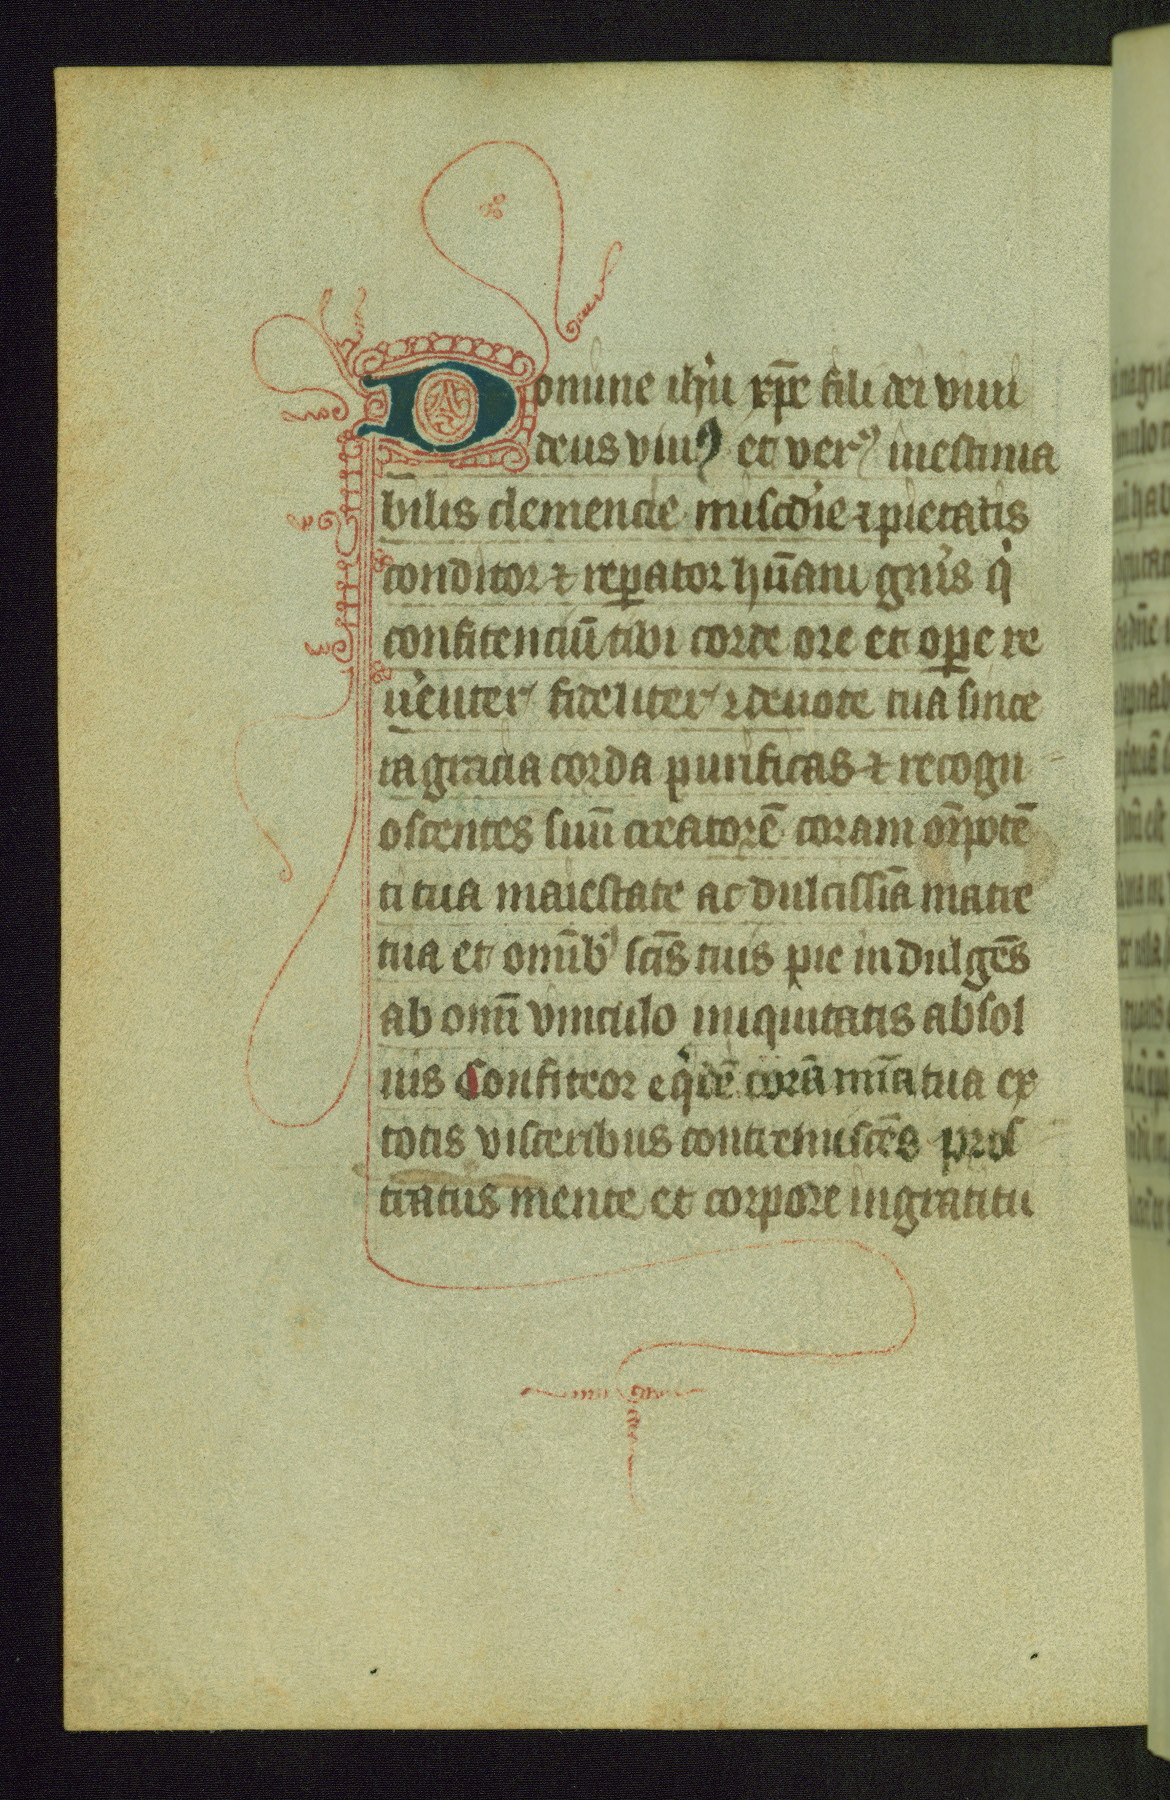 Domine ihu xpe fili dei viui
deus viuꝰ et verꝰ inestima
bilis clemencie miscdie ⁊ pietatis
conditor ⁊ reꝑator hūani gnris q̇
confitenciū tibi corde ore et oꝑe re
u̇enter fideliter ⁊ deuote tua since
ra gracia corda purificas ⁊ recogn
oscentes suū creatorē coram om̄potē
ti tua maiestate ac dulcissīa matre
tua et omībꝰ scīs tuis pie indulgēs
ab omī vinculo iniquitatis absol
uis Confiteor eq̇dē corā mīa tua ex
totis visceribus contremiscēs pros
tratus mente et corpore ingratitu